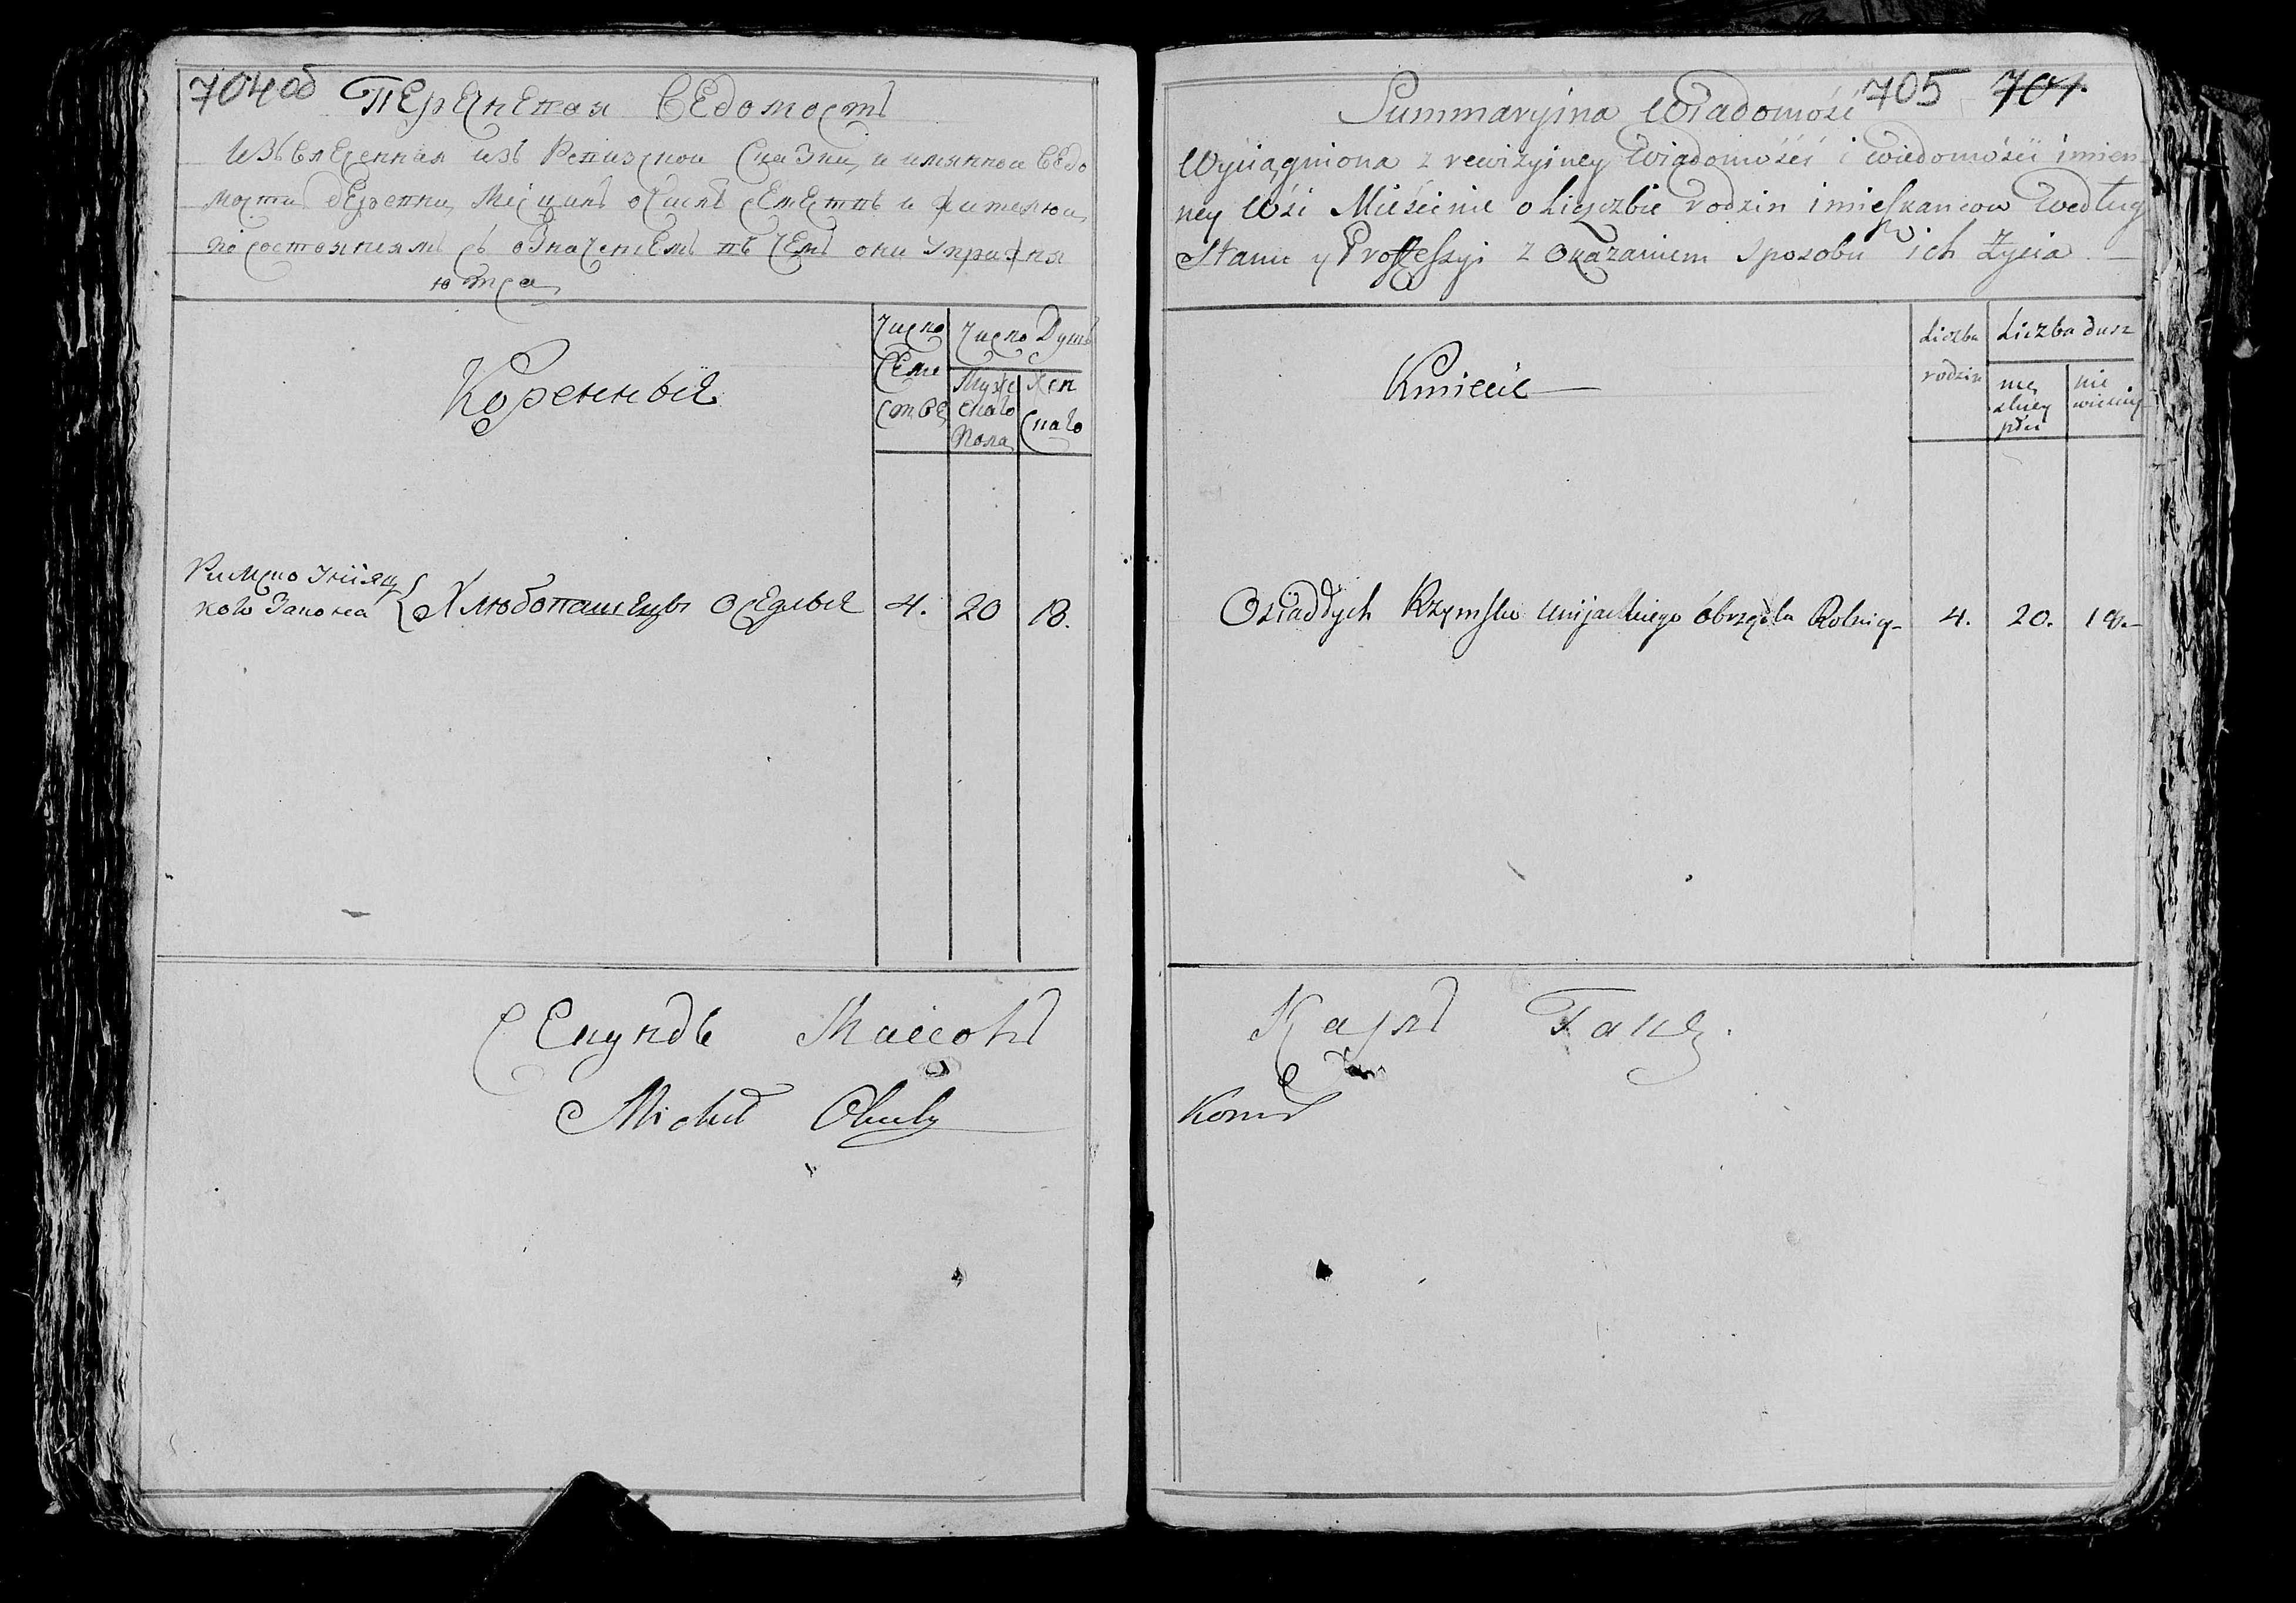 704 об
Перечневая Ведомость
Извлеченная изъ Ревизской Сказки, и имянной Ведо
мости деревни Месцинъ о числе Семействъ и жителей,
по состояниямъ съ означениемъ въ чемъ они упражня
ются
Коренныя
Число
Семе
ствъ
Число Душъ
Мужс
скаго
пола
Жен
скаго
Римско Унiяц
кого Закона
Хлебопашецы Оседлые 4. 20 18.
Секундъ Маiоръ
Michał
705 704.
Summaryina Wiadomość
Wyciągniona z rewizyiney Wiadomości i wiedomości imien-
ney Wsi Mieścinie o Liczbie rodzin i mieszkancow Według
Stanu y Professyi z Okazaniem sposobu ich życia. —
Kmiecie
Liczba
rodzin
Liczba dusz
mę
skiey
płci
nie
wieściey
Osiadłych Rzymsko Unijackiego óbrządku Rolnicy 4. 20. 18.
Карлъ Ганъ.